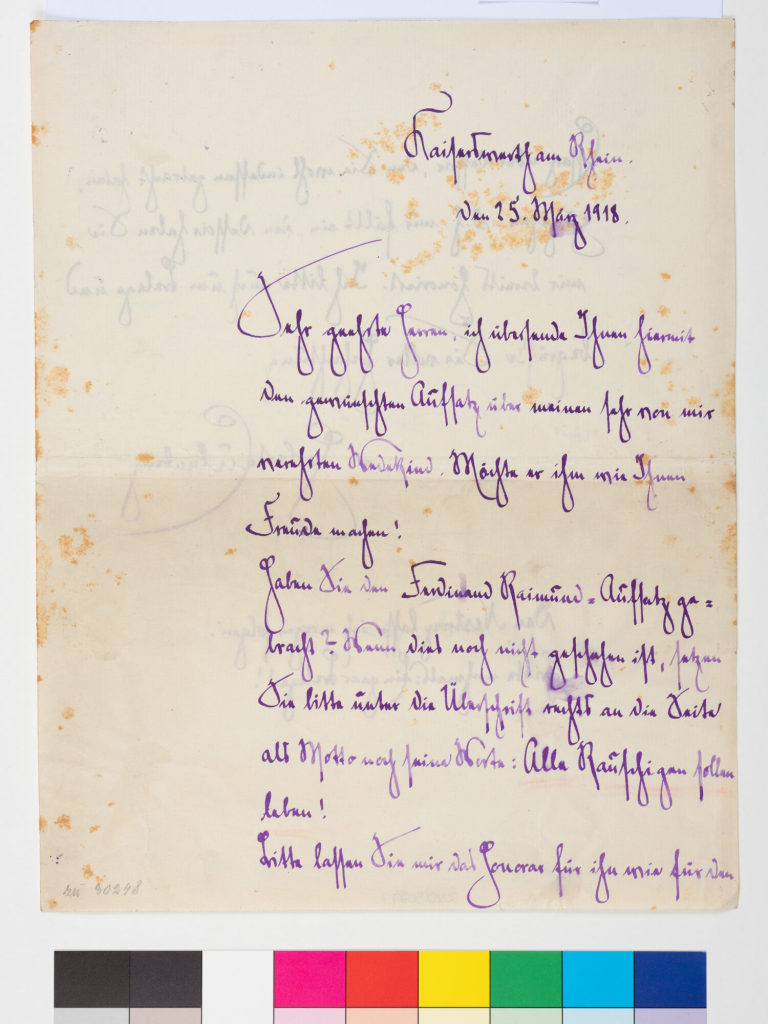 Kaiserswerth am Rhein.
den 25. März 1918.
Sehr geehrte Herren, ich übersende Ihnen hiermit
den gewünschten Aufsatz über meinen sehr von mir
verehrten Wedekind. Möchte er ihm wie Ihnen
Freude machen!
Haben Sie den Ferdinand Raimund=Aufsatz ge=
bracht? Wenn dies noch nicht geschehen ist, setzen
Sie bitte unter die Überschrift rechts an die Seite
als Motto noch seine Worte: Alle Rauschigen sollen
leben!
Bitte lassen Sie mir das Honorar für ihn wie für den